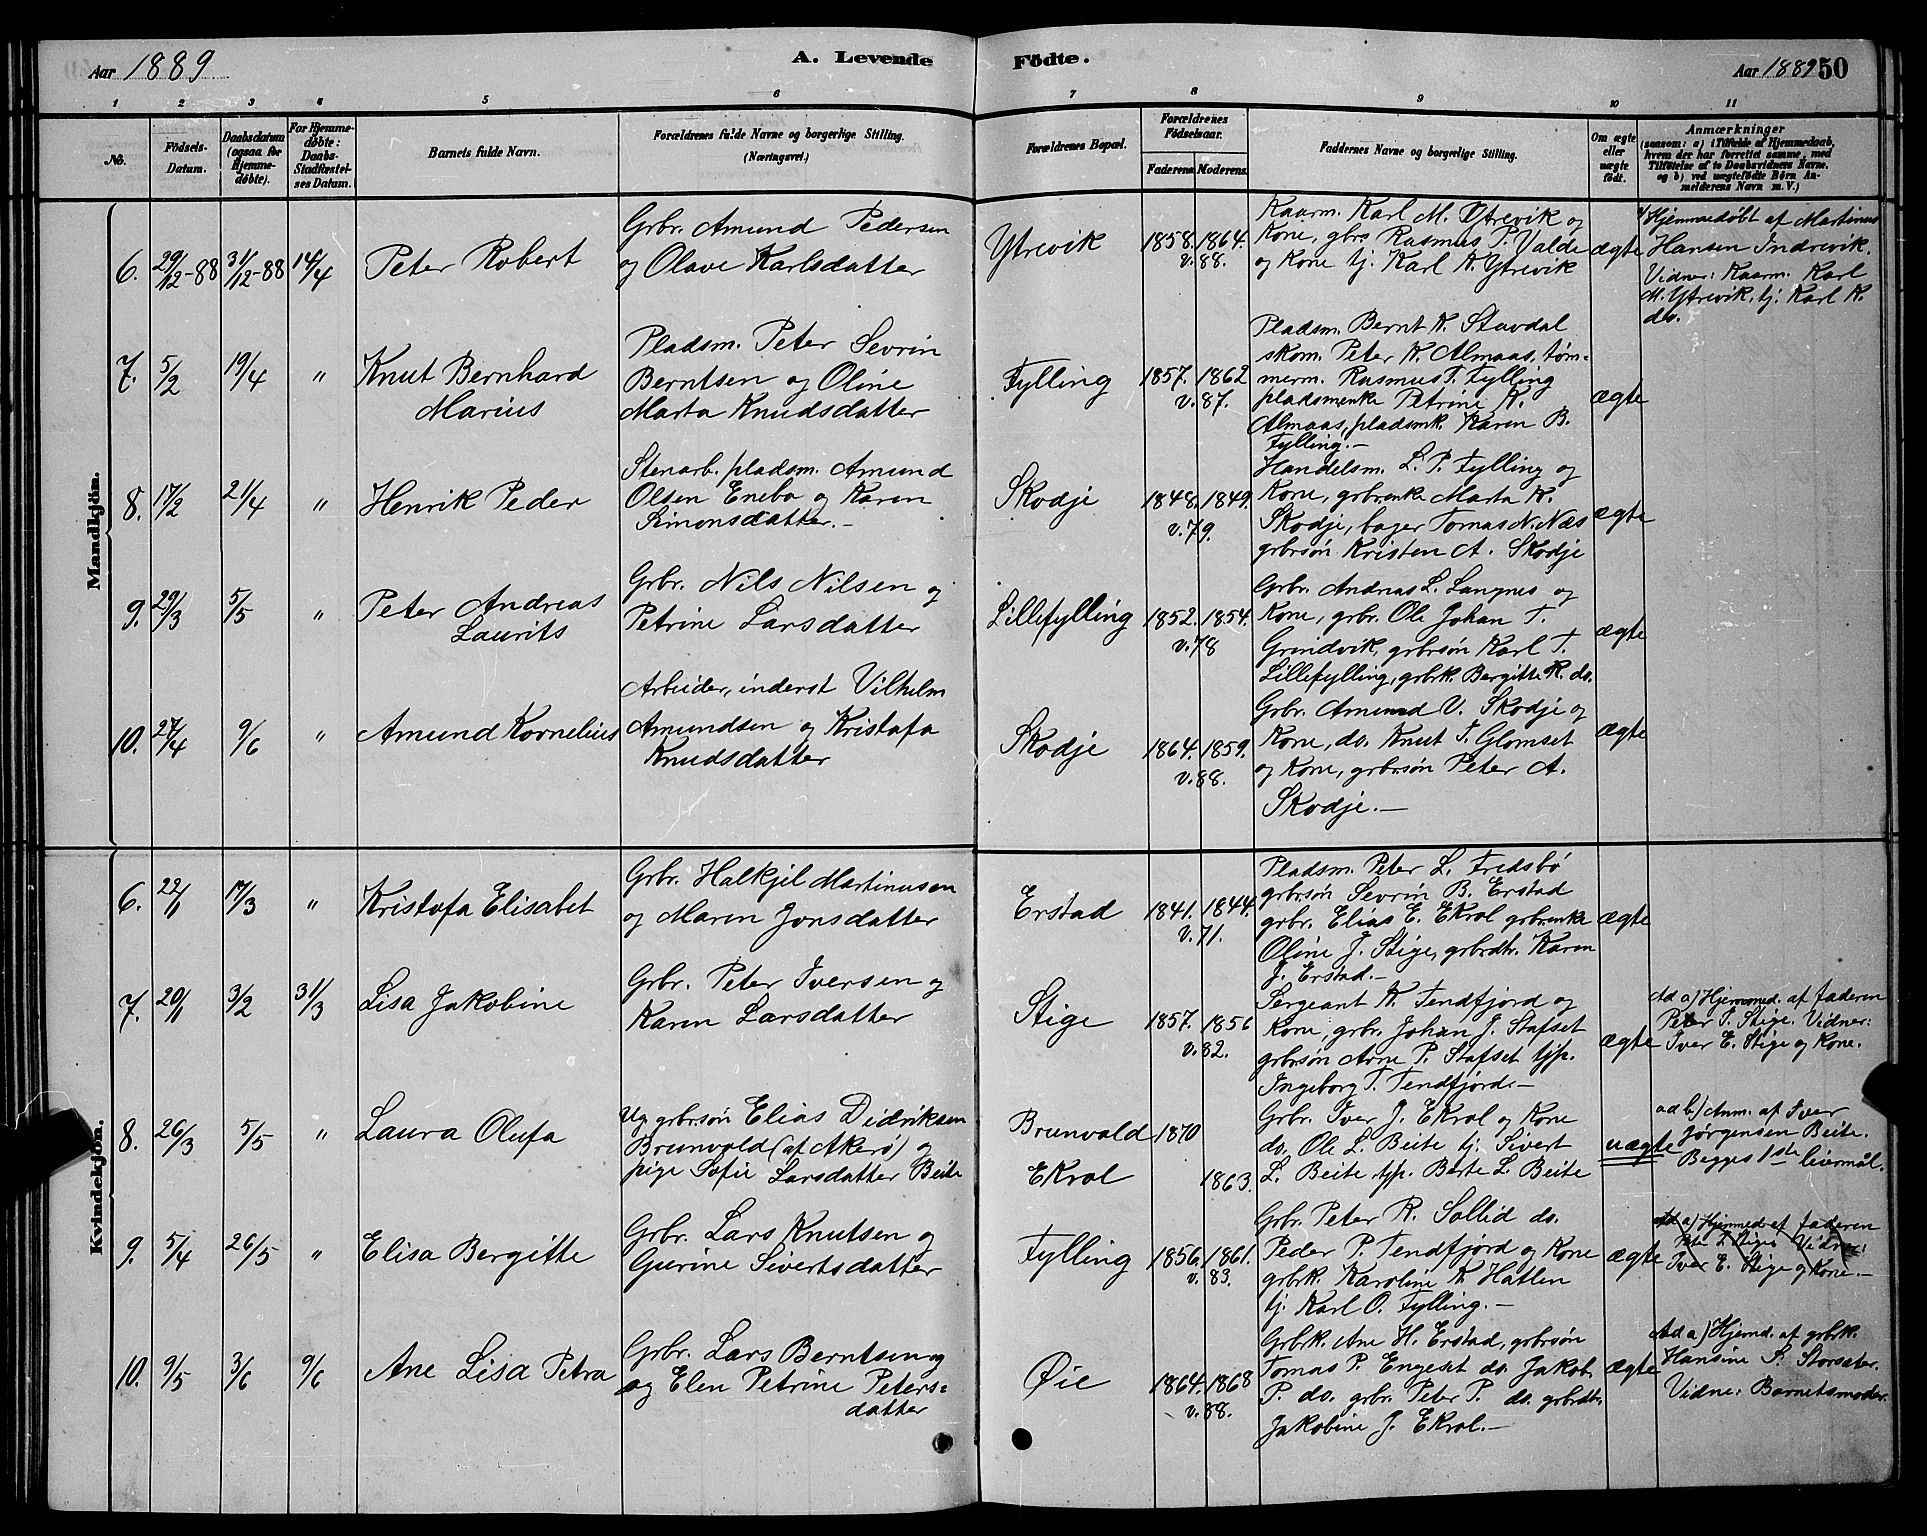 Aar 1889
A. Levende Födte.
Aar 1889 50
1 2 3 4 5 6 7 8 9 10 11
No.
Födsels-
Datum.
Daabsdatum
(ogsaa for
Hjemme-
døbte).
For Hjemme-
døbte:
Daabs-
Stadfæstel-
ses Datum.
Barnets fulde Navn.
Forældrenes fulde Navne og borgerlige Stilling.
(Næringsvei.)
Forældrenes Bopæl.
Forældrenes
Födselsaar.
Faderens Moderens.
Faddernes Navne og borgerlige Stilling.
Om ægte
eller
uægte
født.
Anmærkninger
(saasom: a) i Tilfælde af Hjemmedaab,
hvem der har forrettet samme, med
Tilføielse af to Daabsvidners Navne.
og b) ved uægtefødte Børn An-
melderens Navn m. V.)
Mandkjön.
6. 29/12-88 31/12-88 14/4
Peter Robert
Grbr. Amund Pedersen
og Olave Karlsdatter
Ytrevik
1858. 1864.
v. 88.
Kaarm. Karl M. Ytrevik og
Kone, gbr. Rasmus P. Valde
og Kone tj. Karl K. Ytrevik
ægte
a/ Hjemmedøbt af Martinus
Hansen Indrevik.
Vidner: Kaarm. Karl
M. Ytrevik, tj. Karl K.
do.
7. 5/2 19/4 "
Knut Bernhard
Marius
Pladsm. Peter Sevrin
Berntsen og Oline
Marta Knudsdatter
Fylling
1857. 1862
v. 87.
Pladsm. Bernt K. Stavdal
skom. Peter K. Almaas, tøm-
merm. Rasmus T. Fylling
pladsmenke Petrine K.
Almaas, pladsmk. Karen B.
Fylling.-
ægte
8. 17/2 21/4 "
Henrik Peder
Stenarb. pladsm. Amund
Olsen Enebo og Karen
Simonsdatter.-
Skodje
1848. 1849.
v. 79.
Handelsm. L. P. Fylling og
Kone, grbrenke Marta K.
Skodje, bager Tomas N. Næs
grbrsøn Kristen A. Skodje
ægte
9. 29/3 5/5 "
Peter Andreas
Laurits
Grbr. Nils Nilsen og
Petrine Larsdatter
Lillefylling
1852. 1854.
v. 78
Grbr. Andreas L. Langnes og
Kone, grbr. Ole Johan T.
Grindvik, grbrsøn Karl T.
Lillefylling, grbrk. Bergitte K. do.
ægte
10. 27/4 9/6 "
Amund Kornelius
Arbeider, inderst Vilhelm
Amundsen og Kristofa
Knudsdatter
Skodje
1864. 1859.
v. 88.
Grbr. Amund V. Skodje og
Kone, do. Knut T. Glomset
og Kone, grbrsøn Peter A.
Skodje.-
ægte
Kvindekjön.
6. 22/1 17/3 "
Kristofa Elisabet
Grbr. Halkjel Martinusen
og Maren Jonsdatter
Erstad
1841. 1844.
v. 71.
Pladsm. Peter L. Fredsbø
grbrsøn Sevrin B. Erstad
grbr. Elias E. Ekrol grbrenke
Oline J. Stige, grbrdtr. Karen
J. Erstad.-
ægte
7. 20/1 3/2 31/3
Lisa Jakobine
Grbr. Peter Iversen og
Karen Larsdatter
Stige
1857. 1856
v. 82.
Sergeant K. Tendfjord og
Kone, grbr. Johan J. Stafset
grbrsøn Arne P. Stafset tjp.
Ingeborg T. Tendfjord.-
ægte
Ad a) Hjemmed. af faderen
Peter I. Stige. Vidner:
Iver E. Stige og Kone.
8. 26/3 5/5 "
Laura Olufa
Ug grbrsøn Elias Didriksen
Brunvold (af Akerø) og
pige Sofie Larsdatter Beite
Brunvold
Ekrol
1870
1863.
Grbr. Iver J. Ekrol og Kone
do. Ole L. Beite tj. Sivert
L. Beite tjp. Berte L. Beite
uægte
ad b) Anm. af Iver
Jørgensen Beite.
Begges 1ste leiermål.
9. 5/4 26/5 "
Elisa Bergitte
Grbr. Lars Knutsen og
Gurine Sivertsdatter
Fylling
1856. 1861.
v. 83.
Grbr. Peter R. Sollid do.
Peder P. Tendfjord og Kone
grbrk. Karoline K. Hatlen
tj. Karl O. Fylling.-
ægte
Ad a) Hjemmed af faderen
Peter I. Stige Vidner:
Iver E. Stige og Kone.-
10. 9/5 3/6 9/6
Ane Lisa Petra
Grbr. Lars Berntsen og
og Elen Petrine Peters-
datter
Øie
1864. 1868
v. 88.
Grbrk. Ane H. Erstad, grbrsøn
Tomas P. Engeset do. Jakob
P. do. grbr. Peter P. do. grbrdtr.
Jakobine J. Ekrol.-
ægte
Ad a) Hjemd. af grbrk.
Hansine S. Storsæter.
Vidne: Barnetsmoder.